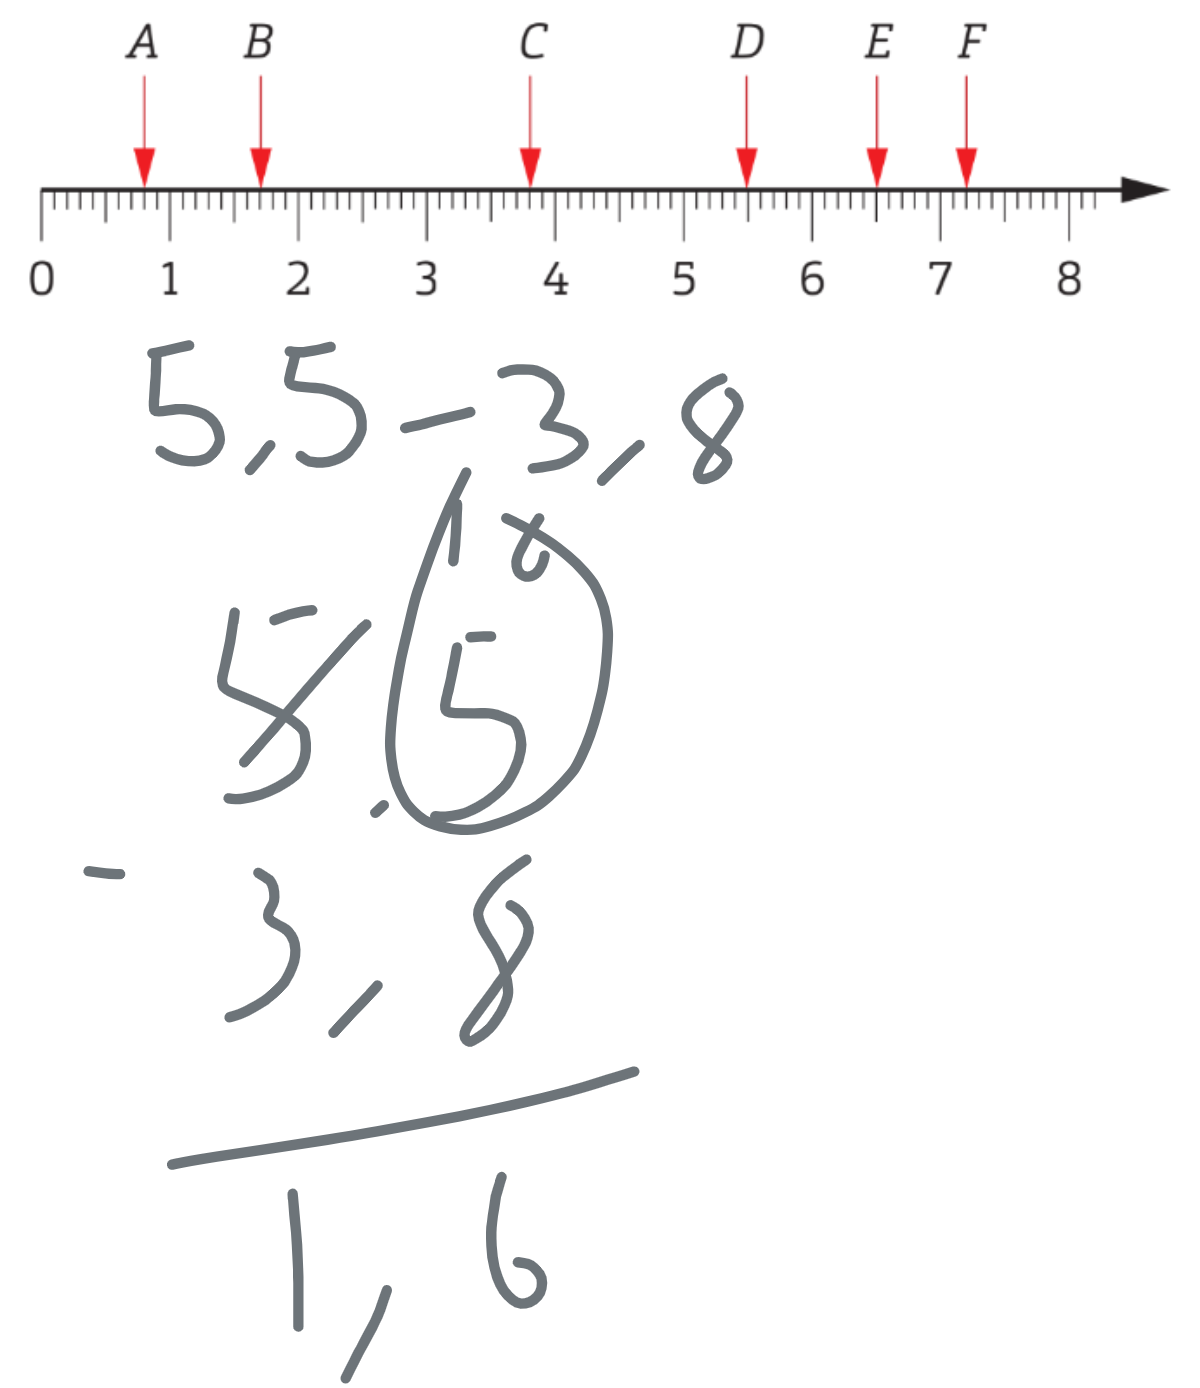 A B C D E F
0 1 2 3 4 5 6 7 8
5,5 - 3,8
10
5.5
- 3,8
1,6